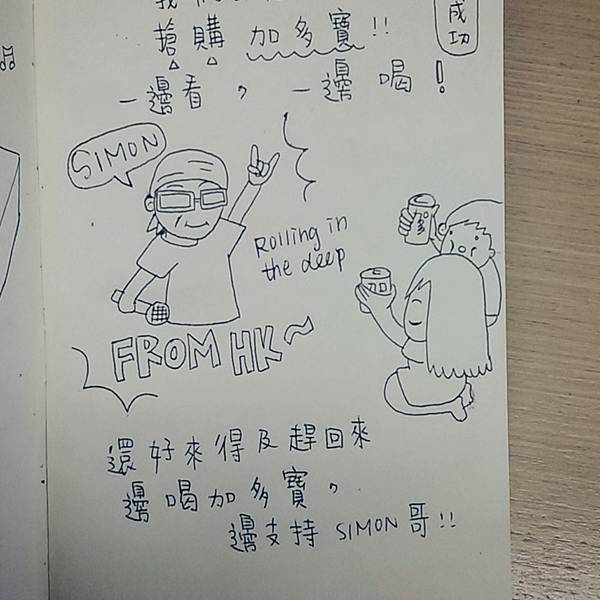 成功
搶購 加多寶!!
一邊看，一邊喝!
SIMON
Rolling in
the deep
加
FROM HK~
還好來得及趕回來
邊喝加多寶，
邊支持 SIMON 哥!!